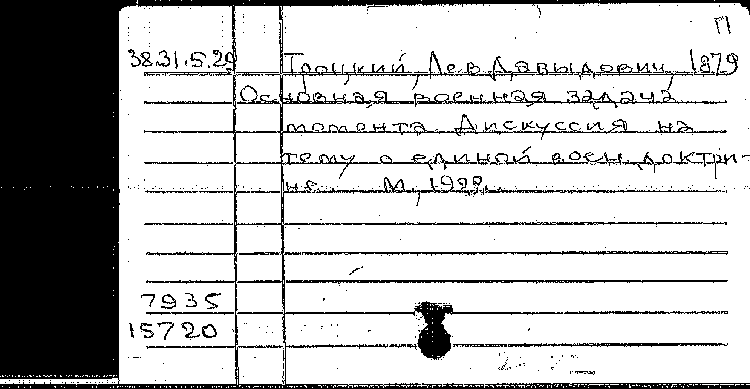 П
38.31.5.29 Троцкий, Лев Давыдович, 1879
Основная военная задача
момента. Дискуссия на
тему о единой воен. доктри-
не. М., 1922.
7935
15720